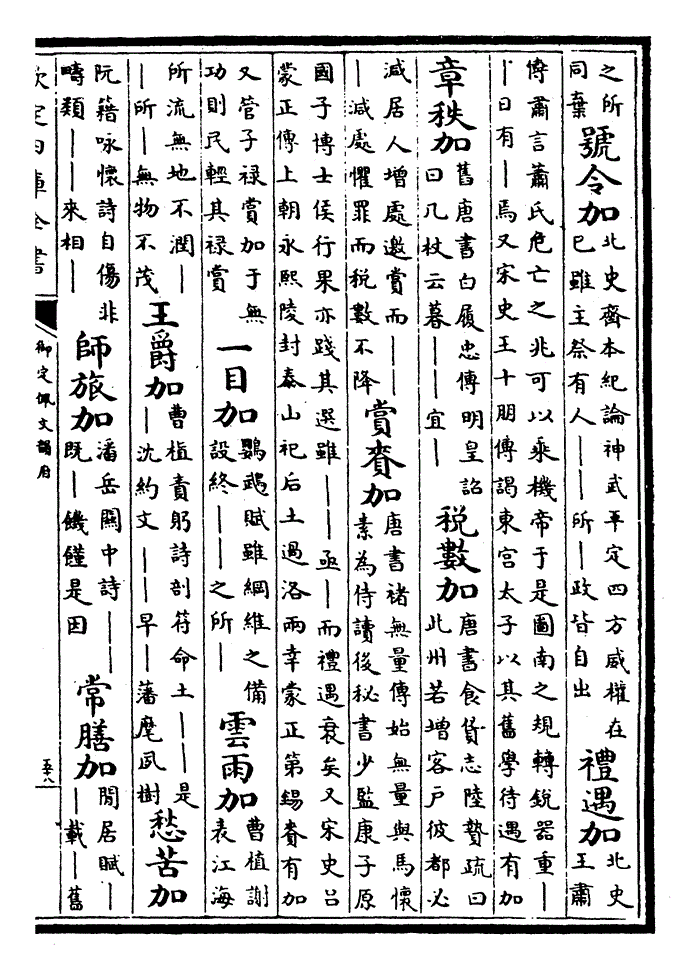 之所同棄 號令加 北史齊本紀論神武平定四方威權在巳雖主祭有人——所—政皆自出 禮遇加 北史王肅
傳肅言蕭氏危亡之兆可以乘機帝于是圖南之規轉銳器重——曰有—焉又宋史王十朋傳謁東宮太子以其舊學待遇有加
章秩加 舊唐書白履忠傳明皇詔曰几杖云暮——宜— 税數加 唐書食貨志陸贄疏曰此州若增客戶彼都必
減居人增處邀賞而———減處懼罪而税數不降 賞賚加 唐書褚無量傳始無量與馬懷素為侍讀後秘書少監康子原
國子博士侯行果亦踐其選雖——亟—而禮遇衰矣又宋史吕蒙正傳上朝永熙陵封泰山祀后土過洛兩幸蒙正第錫賚有加
又管子禄賞加于無功則民輕其禄賞 一目加 鸚鵡賦雖綱維之備設終——之所— 雲雨加 曹植謝表江海
所流無地不潤——所—無物不茂 王爵加 曹植責躬詩剖符命土———是—沈約文——早—藩麾夙樹 愁苦加
阮籍咏懷詩自傷非疇類——來相— 師旅加 潘岳關中詩——既—饑饉是因 常膳加 閒居賦——載—舊
欽定四庫全書
御定佩文韻府